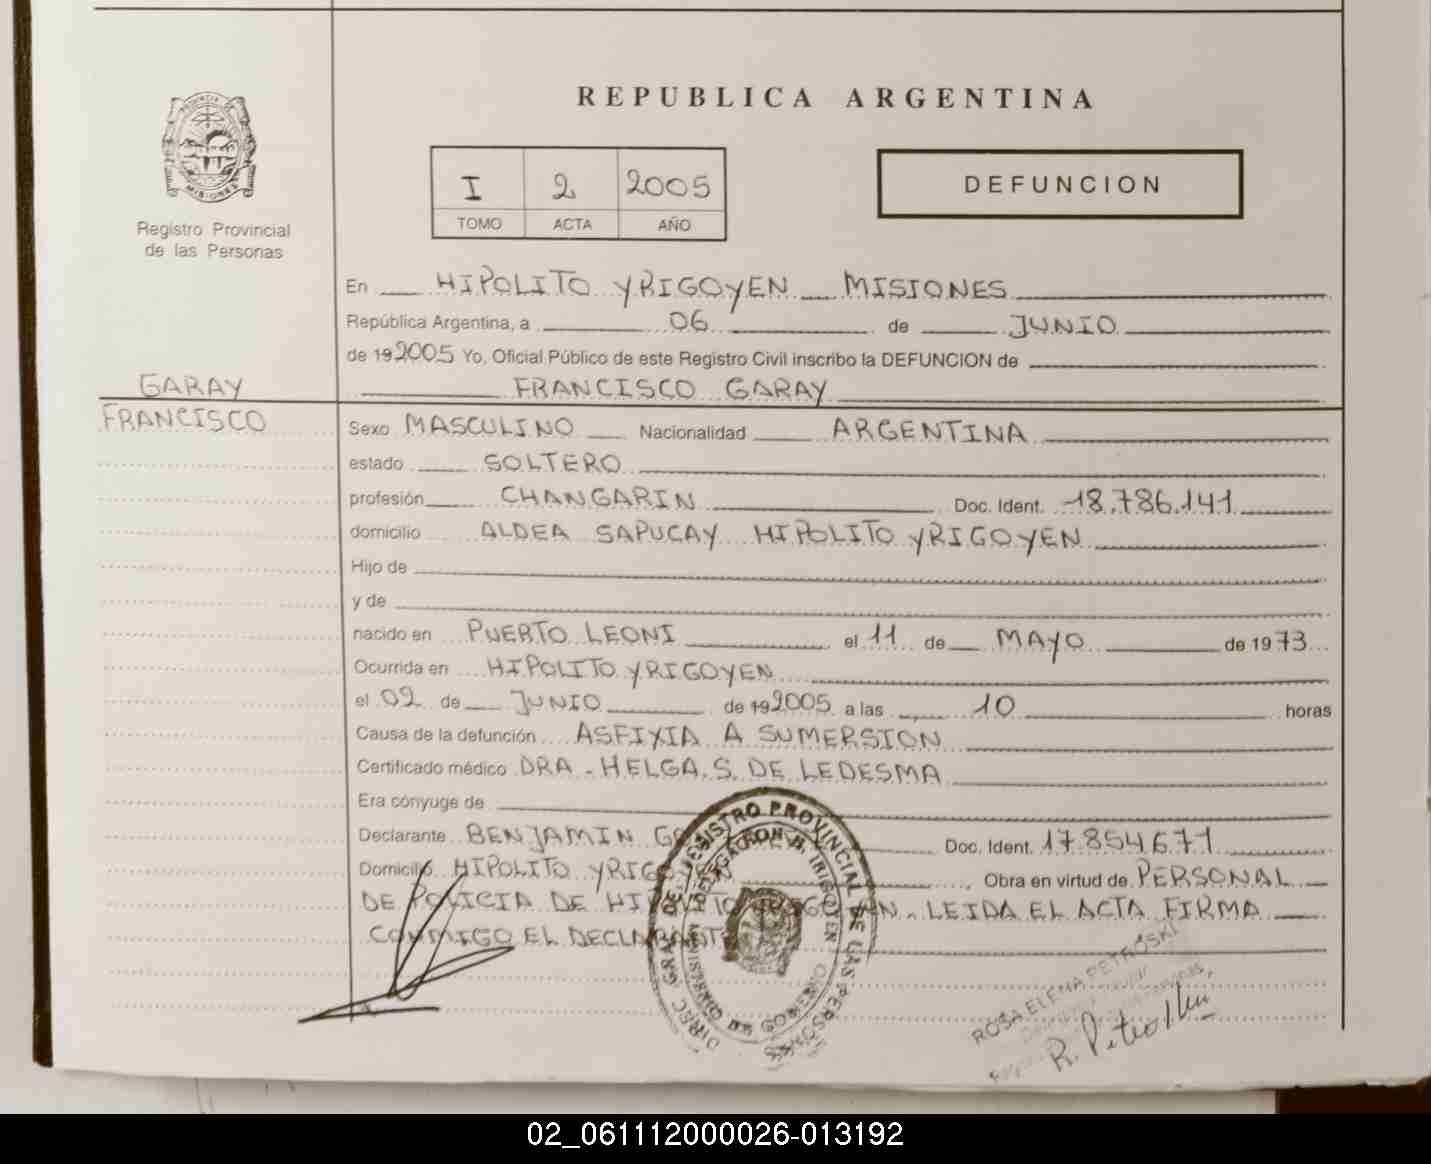 REPUBLICA ARGENTINA
PROVINCIA DE
MISIONES
Registro Provincial
de las Personas
I 2 2005
TOMO ACTA AÑO
DEFUNCION
En HIPOLITO YRIGOYEN MISIONES
República Argentina, a 06 de JUNIO
de 192005 Yo, Oficial Público de este Registro Civil inscribo la DEFUNCION de
GARAY
FRANCISCO
FRANCISCO GARAY
Sexo MASCULINO Nacionalidad ARGENTINA
estado SOLTERO
profesión CHANGARIN Doc. Ident. 18.786.141
domicilio ALDEA SAPUCAY HIPOLITO YRIGOYEN
Hijo de
y de
nacido en PUERTO LEONI el 11 de MAYO de 1973
Ocurrida en HIPOLITO YRIGOYEN
el 02 de JUNIO de 192005 a las 10 horas
Causa de la defunción ASFIXIA A SUMERSION
Certificado médico DRA. HELGA. S. DE LEDESMA
Era cónyuge de
Declarante BENJAMIN Doc. Ident. 17.854.671
Domicilio HIPOLITO YRIGOYEN Obra en virtud de PERSONAL
DE POLICIA DE HIPOLITO YRIGOYEN. LEIDA EL ACTA FIRMA
CONMIGO EL DECLARANTE
REGISTRO PROVINCIAL DE LAS PERSONAS
DELEGACION H. IRIGOYEN
MINISTERIO DE GOBIERNO
ROSA ELENA PETROSKI
R. Petroski
02_061112000026-013192